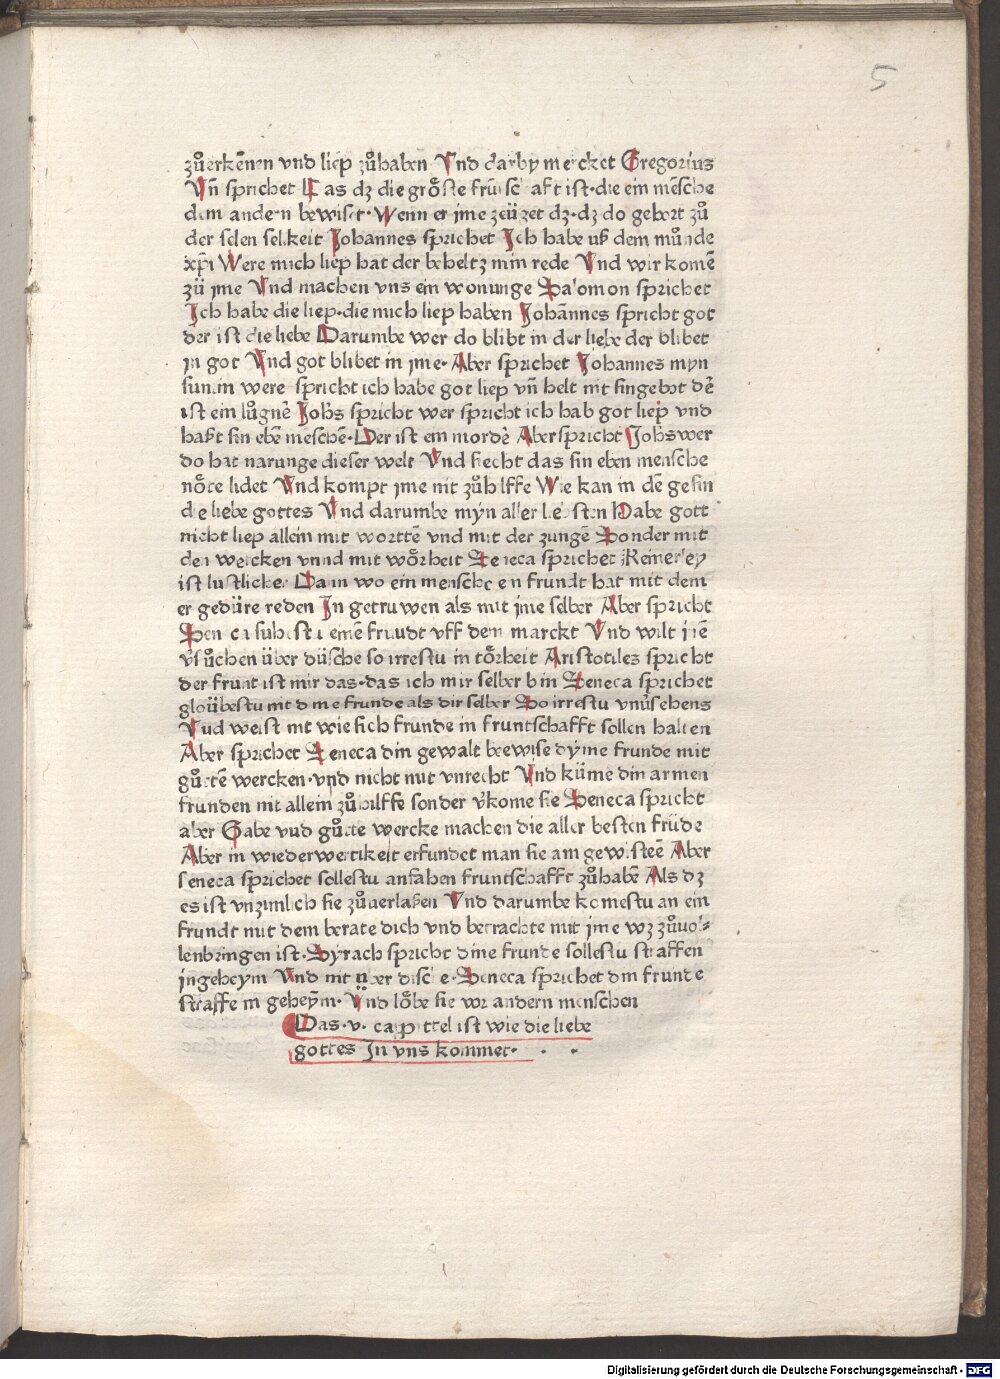 5
zůerkēnen vnd liep zůhaben Vnd darby mercket Gregorius
Vn̄ sprichet Das dz die grőste frūtschaft ist·die ein mēsche
dem andern bewiset·Wenn er jme zeüget dz·dz do gehort zů
der selen selikeit Johannes sprichet Ich habe uß dem můnde
xp̄i Were mich liep hat der beheltz min rede Vnd wir komē
zü jme Vnd machen vns ein wonunge Salomon sprichet
Ich habe die liep·die mich liep haben Johannes spricht got
der ist die liebe Darumbe wer do blibt in der liebe der blibet
in got Vnd got blibet in jme·Aber sprichet Johannes myn
spricht ich habe got liep vn̄ helt nit singebot dē
ist ein lůgnē Joh̄s spricht wer spricht ich hab got liep vnd
haßt sin ebē meschē·Der ist ein mordē Aber spricht Joh̄s wer
do hat narunge dieser welt Vnd siecht das sin eben mensche
nőte lidet Vnd kompt jme nit zůhilffe Wie kan in dē gesin
die liebe gottes Vnd darumbe myn aller liebsten Habe gott
nicht liep allein mit worttē vnd mit der zungē Sonder mit
den wercken vnnd mit wőrheit Seneca sprichet Keinerley
ist lustlicher Dann wo ein mensche en frundt hat mit dem
er gedüre reden In getruwen als mit jme selber Aber spricht
Seneca suhestu einē frundt vff dem marckt Vnd wilt jnē
v̄sůchen über düsche so irrestu in tőrheit Aristotiles spricht
der frunt ist mir das·das ich mir selber bin Seneca sprichet
gloübestu nit dime frunde als dir selber So irrestu vnůsehens
Vnd weist nit wie sich frunde in fruntschafft sollen halten
Aber sprichet Seneca din gewalt beewise dyme frunde mit
gůttē wercken·vnd nicht mit vnrecht Vnd küme din armen
frunden nit allein zůhilffe sonder v̄kome sie Seneca spricht
aber Gabe vnd gůtte wercke machen die aller besten frūde
Aber in wiederwertikeit erfundet man sie am gewisteē Aber
seneca sprichet sollestu anfahen fruntschafft zůhabē Als dz
es ist vnzimlich sie zůuerlaßen Vnd darumbe komestu an ein
frundt mit dem berate dich vnd betrachte mit jme wz zůuol⸗
lenbringen ist·Syrach spricht dine frunde sollestu straffen
jngeheym Vnd nit über dische·Seneca sprichet din frunde
straffe in geheȳm·Vnd lőbe sie vor andern menschen
Das·v·capittel ist wie die liebe
gottes In vns kommet·
Digitalisierung gefördert durch die Deutsche Forschungsgemeinschaft - DFG